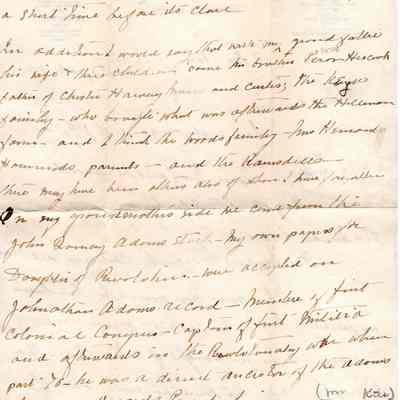 a short time before its close
In addition I would say that with my grandfather
his wife & three children came his brother Heacock
father of Chester Harvey and Curtis, the Keyes
family - who bought what was afterwards the Hillman
farm - and I think the Woods family - Mrs
Hammonds parents - and the Ramsdells -
there may have been others also of whom I have no
On my grandmothers side we come from the
John Adams Stock - My own papers for
Daughters of Revolution - were accepted on
Johnathan Adams record - Member of first
Colonial Congress - Captain of first Militia
and afterwards in the Revolutionary War when
part - he was a direct ancestor of the Adams